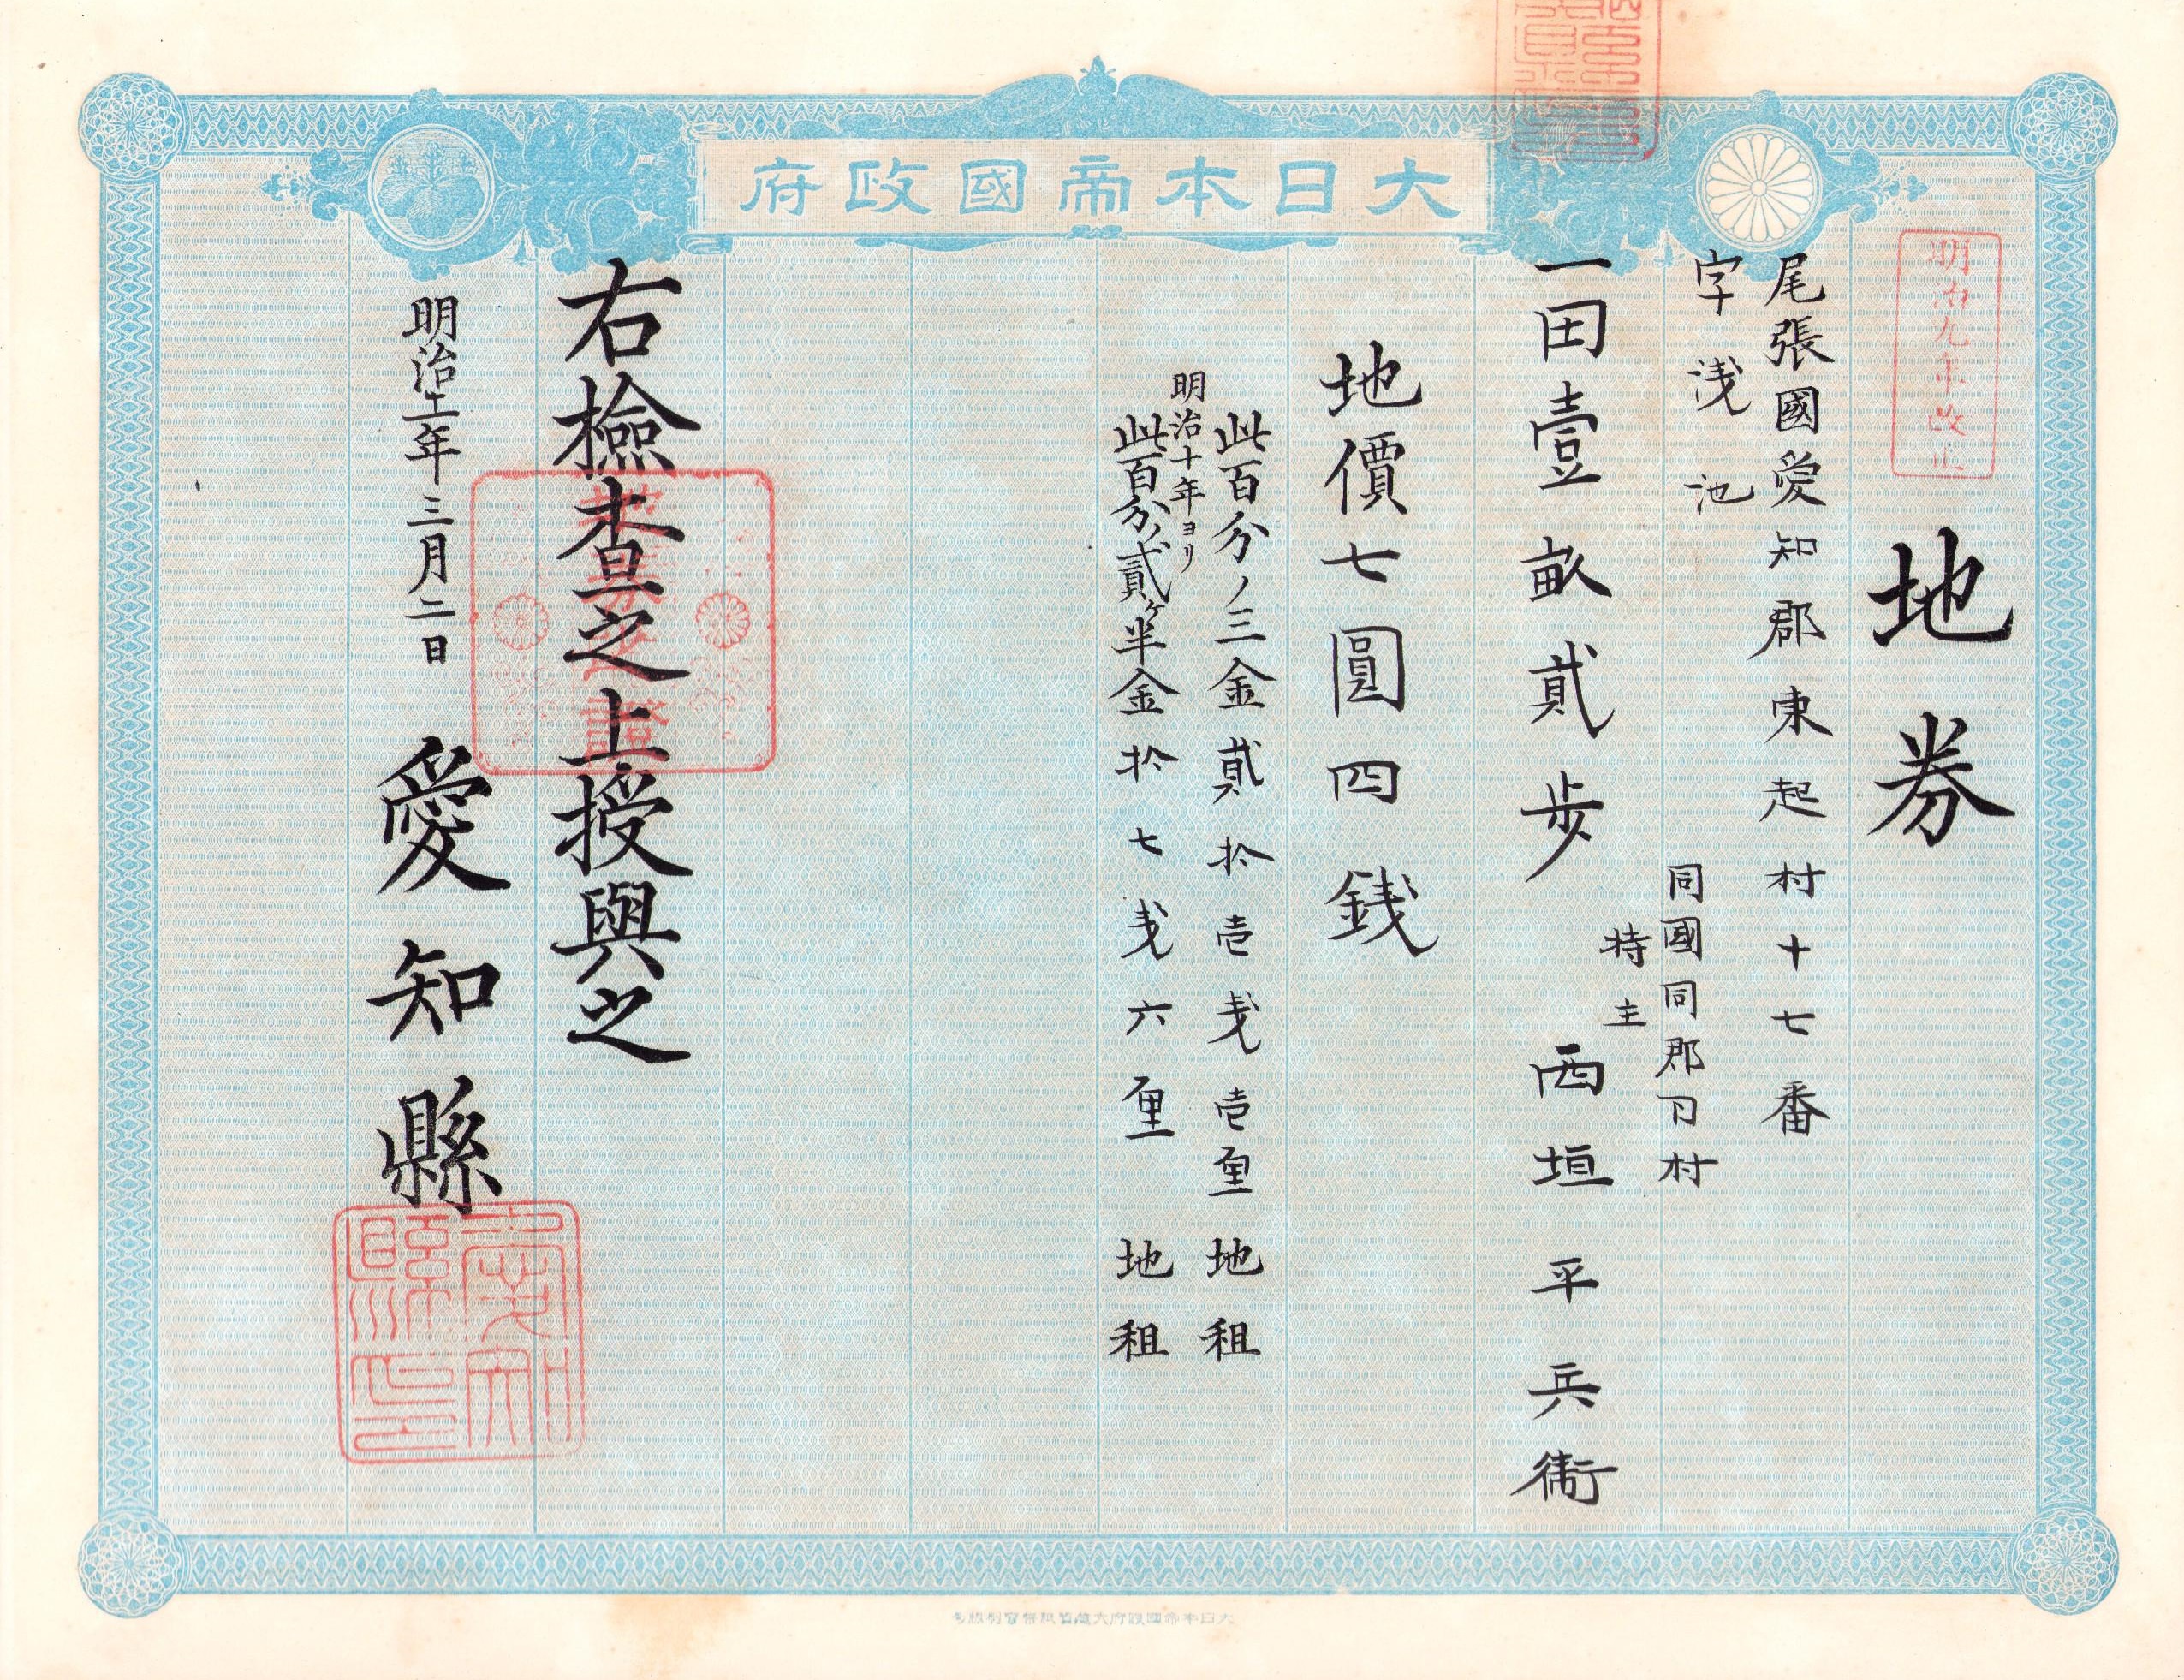 大日本帝國政府
明治九年改正
地券
尾張國愛知郡東起村十七番
字浅池
同國同郡同村
持主
一田壹畝貳歩
西垣平兵衛
地價七圓四銭
此百分ノ三金貳拾壱戋壱厘 地租
明治十年ヨリ
此百分ノ貳ヶ半金拾七戋六厘 地租
右撿査之上授與之
明治十二年三月二日
愛知縣
愛知縣印